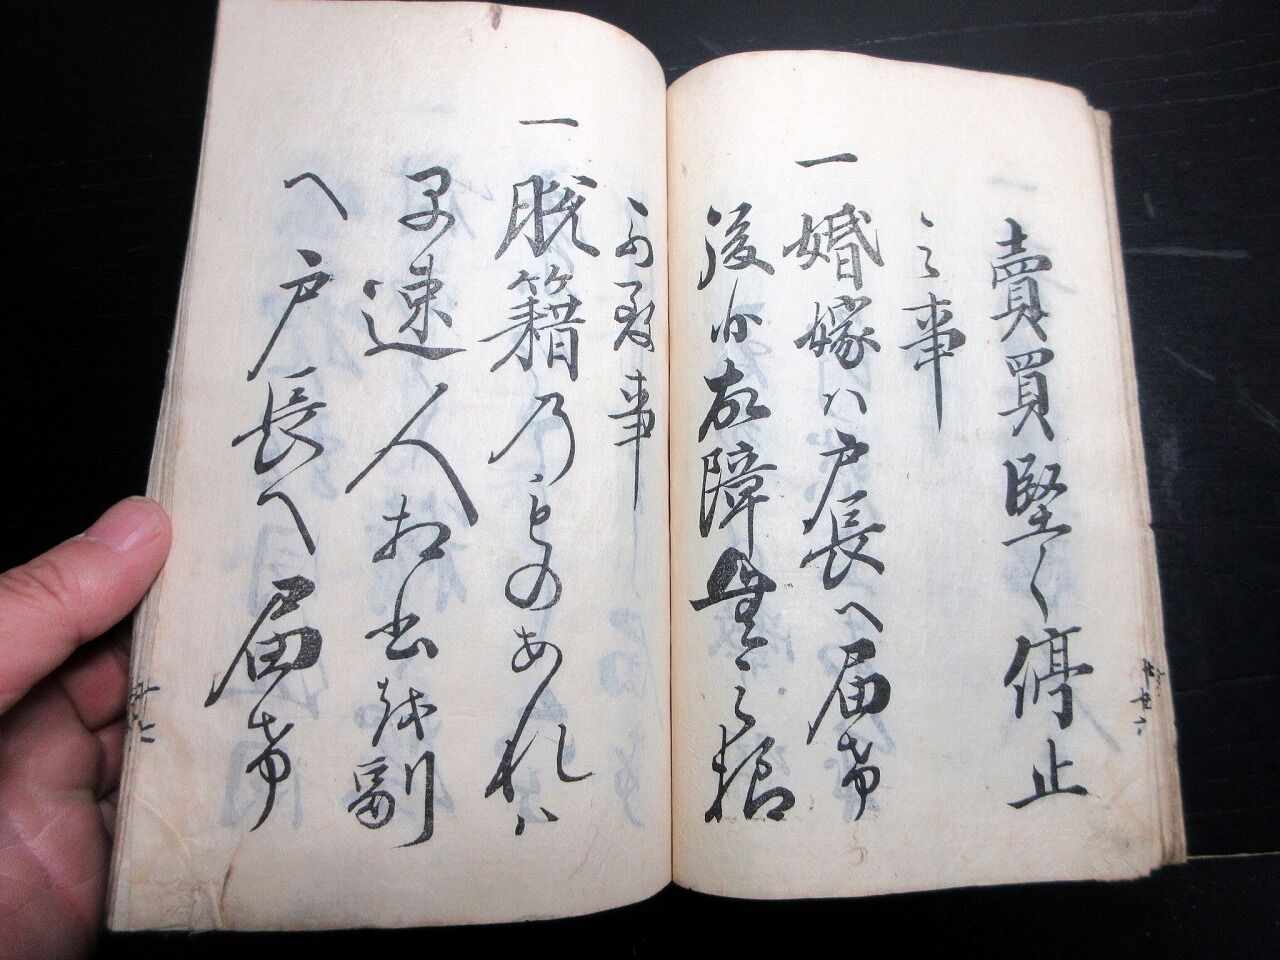 賣買堅く停止
之事
一 婚嫁ハ戸長へ届出
後日故障無之様
可致事
一 脱籍乃ものあれハ
早速人相書相副
へ戸長へ届出
廿六